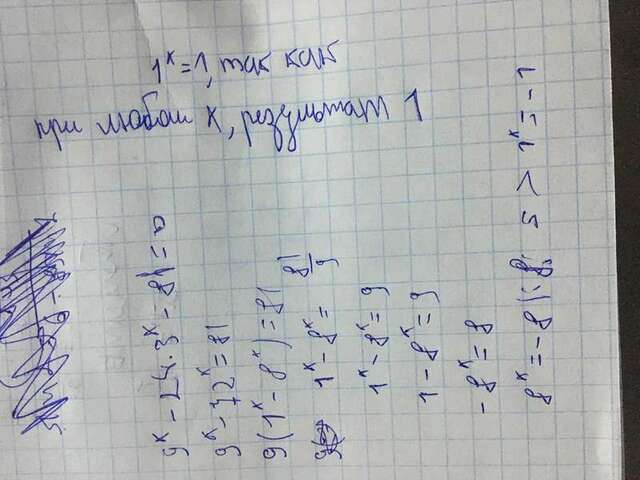 9^x - 24·3^x - 81 = 0
9^x - 72^x = 81
9(1^x - 8^x) = 81
1^x - 8^x = 81/9
1^x - 8^x = 9
1 - 8^x = 9
-8^x = 8
8^x = -8 |:8; 1^x = -1
1^x = 1, так как
при любом x, результат 1